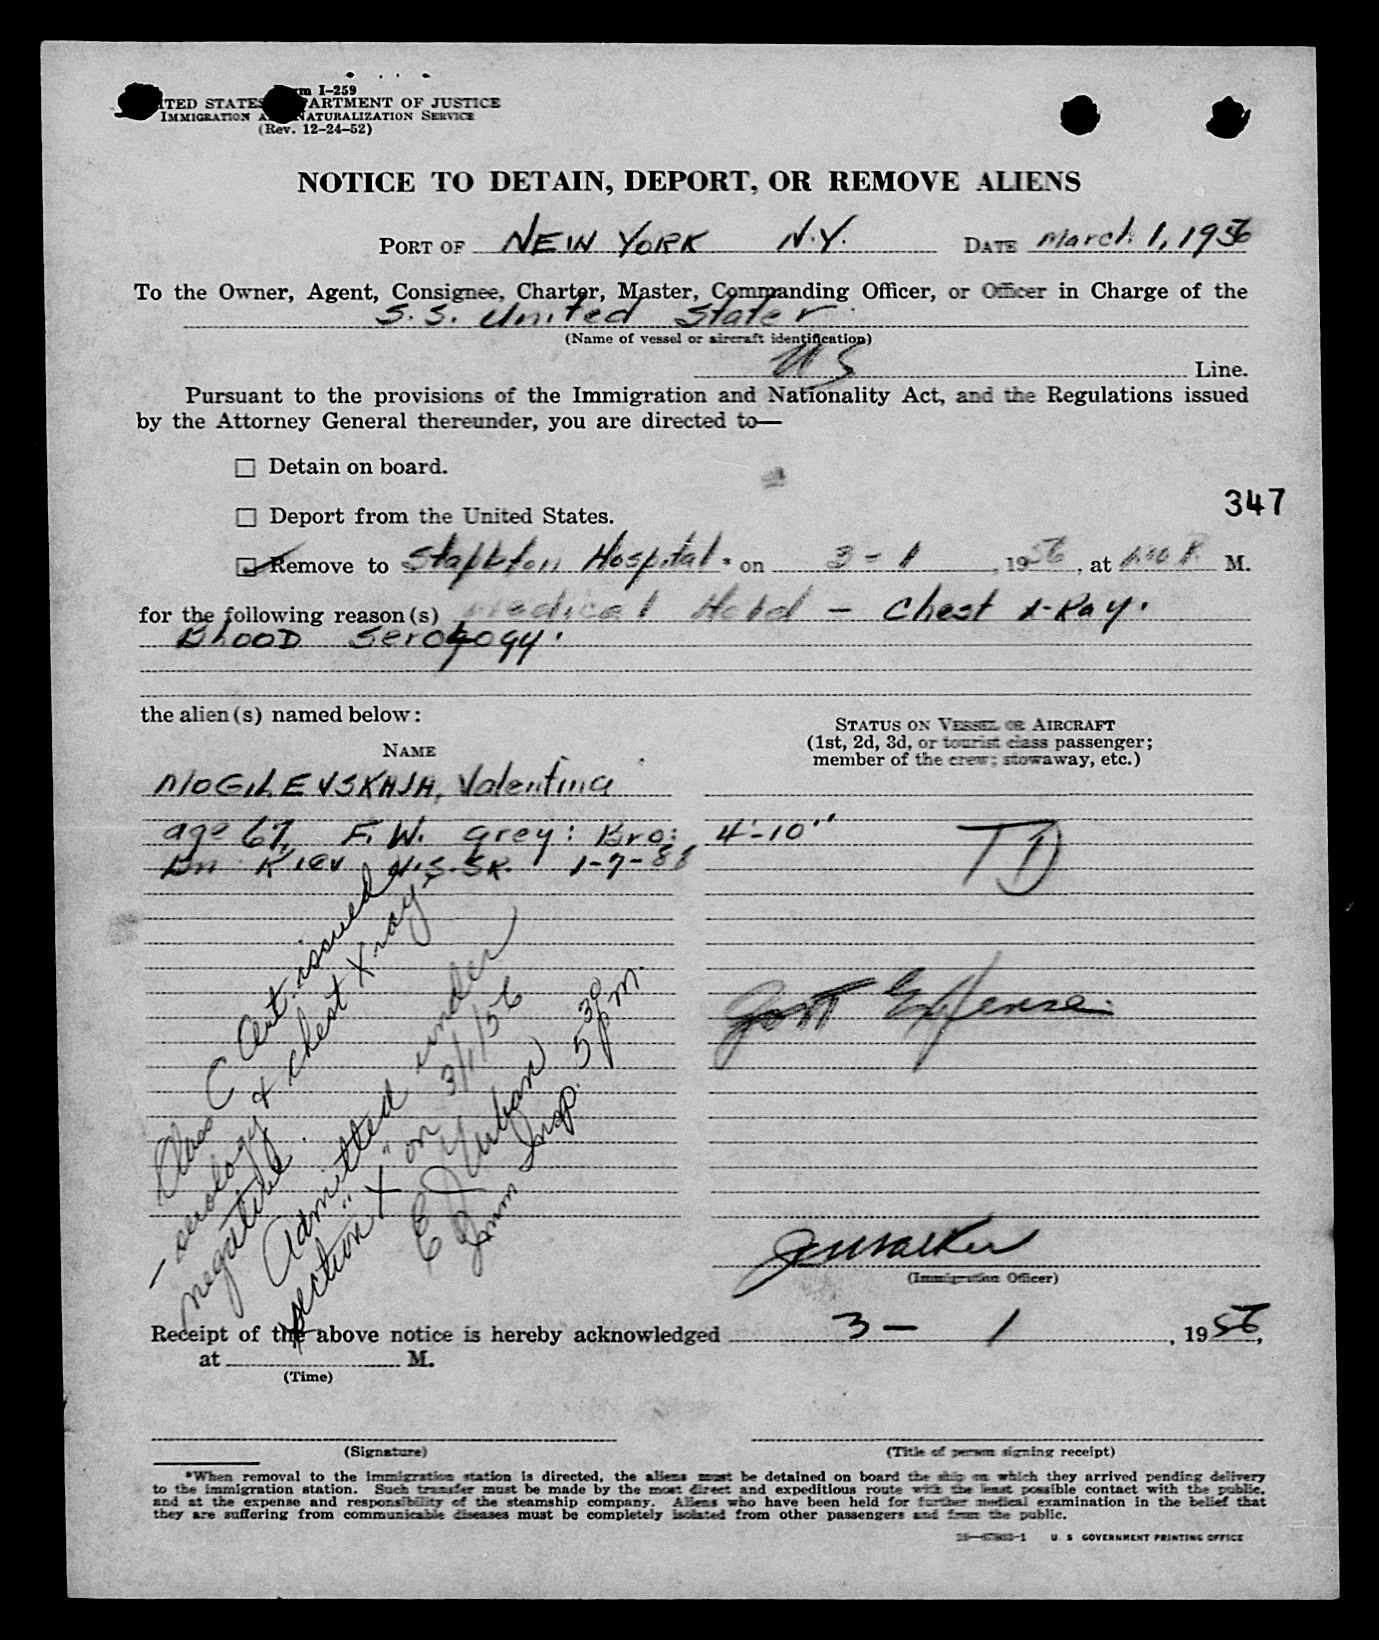 Form I-259
UNITED STATES DEPARTMENT OF JUSTICE
IMMIGRATION AND NATURALIZATION SERVICE
(Rev. 12-24-52)
NOTICE TO DETAIN, DEPORT, OR REMOVE ALIENS
PORT OF NEW YORK N.Y. DATE March 1, 1956
To the Owner, Agent, Consignee, Charter, Master, Commanding Officer, or Officer in Charge of the
S.S. United States
(Name of vessel or aircraft identification)
US Line.
Pursuant to the provisions of the Immigration and Nationality Act, and the Regulations issued
by the Attorney General thereunder, you are directed to—
☐ Detain on board.
347
☐ Deport from the United States.
☑ Remove to Stapleton Hospital * on 3 - 1, 1956, at M.
for the following reason(s) Medical Hold - Chest X-Ray.
Blood Serology.
the alien(s) named below:
STATUS ON VESSEL OR AIRCRAFT
(1st, 2d, 3d, or tourist class passenger;
member of the crew; stowaway, etc.)
NAME
MOGILEVSKAJA, Valentina
age 67, F. W. grey: Bro: 4'-10"
TD
Bn Kiev 1-7-88
Class C Cert. issued
- serology & chest X ray
negative.
Admitted under
section "X" on 3/1/56
E J Urban 5 30 pm.
Imm Insp.
Gov't Expense.
(Immigration Officer)
Receipt of the above notice is hereby acknowledged 3 - 1, 1956,
at M.
(Time)
(Signature) (Title of person signing receipt)
*When removal to the immigration station is directed, the aliens must be detained on board the ship on which they arrived pending delivery
to the immigration station. Such transfer must be made by the most direct and expeditious route with the least possible contact with the public,
and at the expense and responsibility of the steamship company. Aliens who have been held for further medical examination in the belief that
they are suffering from communicable diseases must be completely isolated from other passengers and from the public.
U. S. GOVERNMENT PRINTING OFFICE